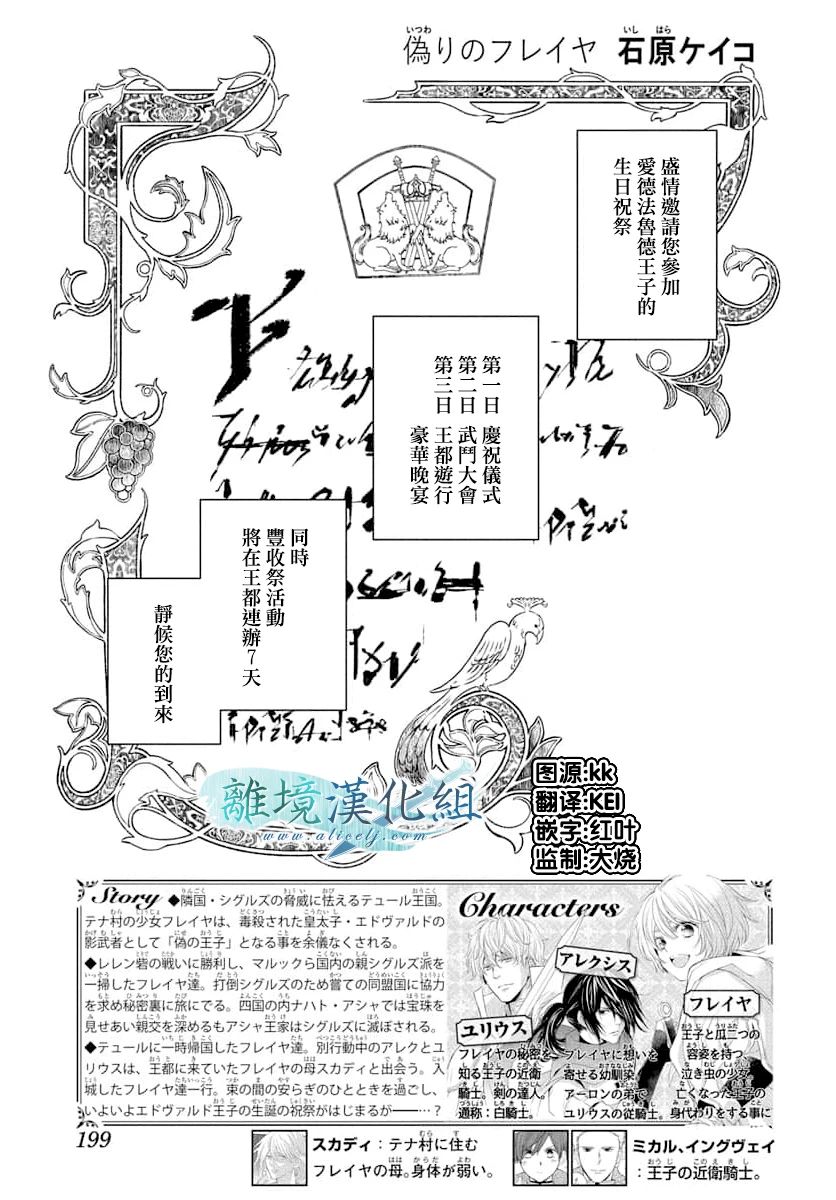 偽りのフレイヤ 石原ケイコ
盛情邀請您參加
愛德法魯德王子的
生日祝祭
第一日 慶祝儀式
第二日 武鬥大會
第三日 王都遊行
豪華晚宴
同時
豐收祭活動
將在王都連辦7天
靜候您的到來
離境漢化組
www.alicelj.com
图源:kk
翻译:KEI
嵌字:红叶
监制:大烧
Story
◆隣国・シグルズの脅威に怯えるテュール王国。
テナ村の少女フレイヤは、毒殺された皇太子・エドヴァルドの
影武者として「偽の王子」となる事を余儀なくされる。
◆レレン砦の戦いに勝利し、マルックら国内の親シグルズ派を
一掃したフレイヤ達。打倒シグルズのため嘗ての同盟国に協力
を求め秘密裏に旅にでる。四国の内ナハト・アシャでは宝珠を
見せあい親交を深めるもアシャ王家はシグルズに滅ぼされる。
◆テュールに一時帰国したフレイヤ達。別行動中のアレクとユ
リウスは、王都に来ていたフレイヤの母スカディと出会う。入
城したフレイヤ達一行。束の間の安らぎのひとときを過ごし、
いよいよエドヴァルド王子の生誕の祝祭がはじまるが――…?
Characters
フレイヤ
王子と瓜二つの
容姿を持つ、
泣き虫の少女。
亡くなった王子の
身代わりをする事に
アレクシス
フレイヤに想いを
寄せる幼馴染。
アーロンの弟で
ユリウスの従騎士。
ユリウス
フレイヤの秘密を
知る王子の近衛
騎士。剣の達人。
通称:白騎士。
199
スカディ:テナ村に住む
フレイヤの母。身体が弱い。
ミカル、イングヴェイ
:王子の近衛騎士。